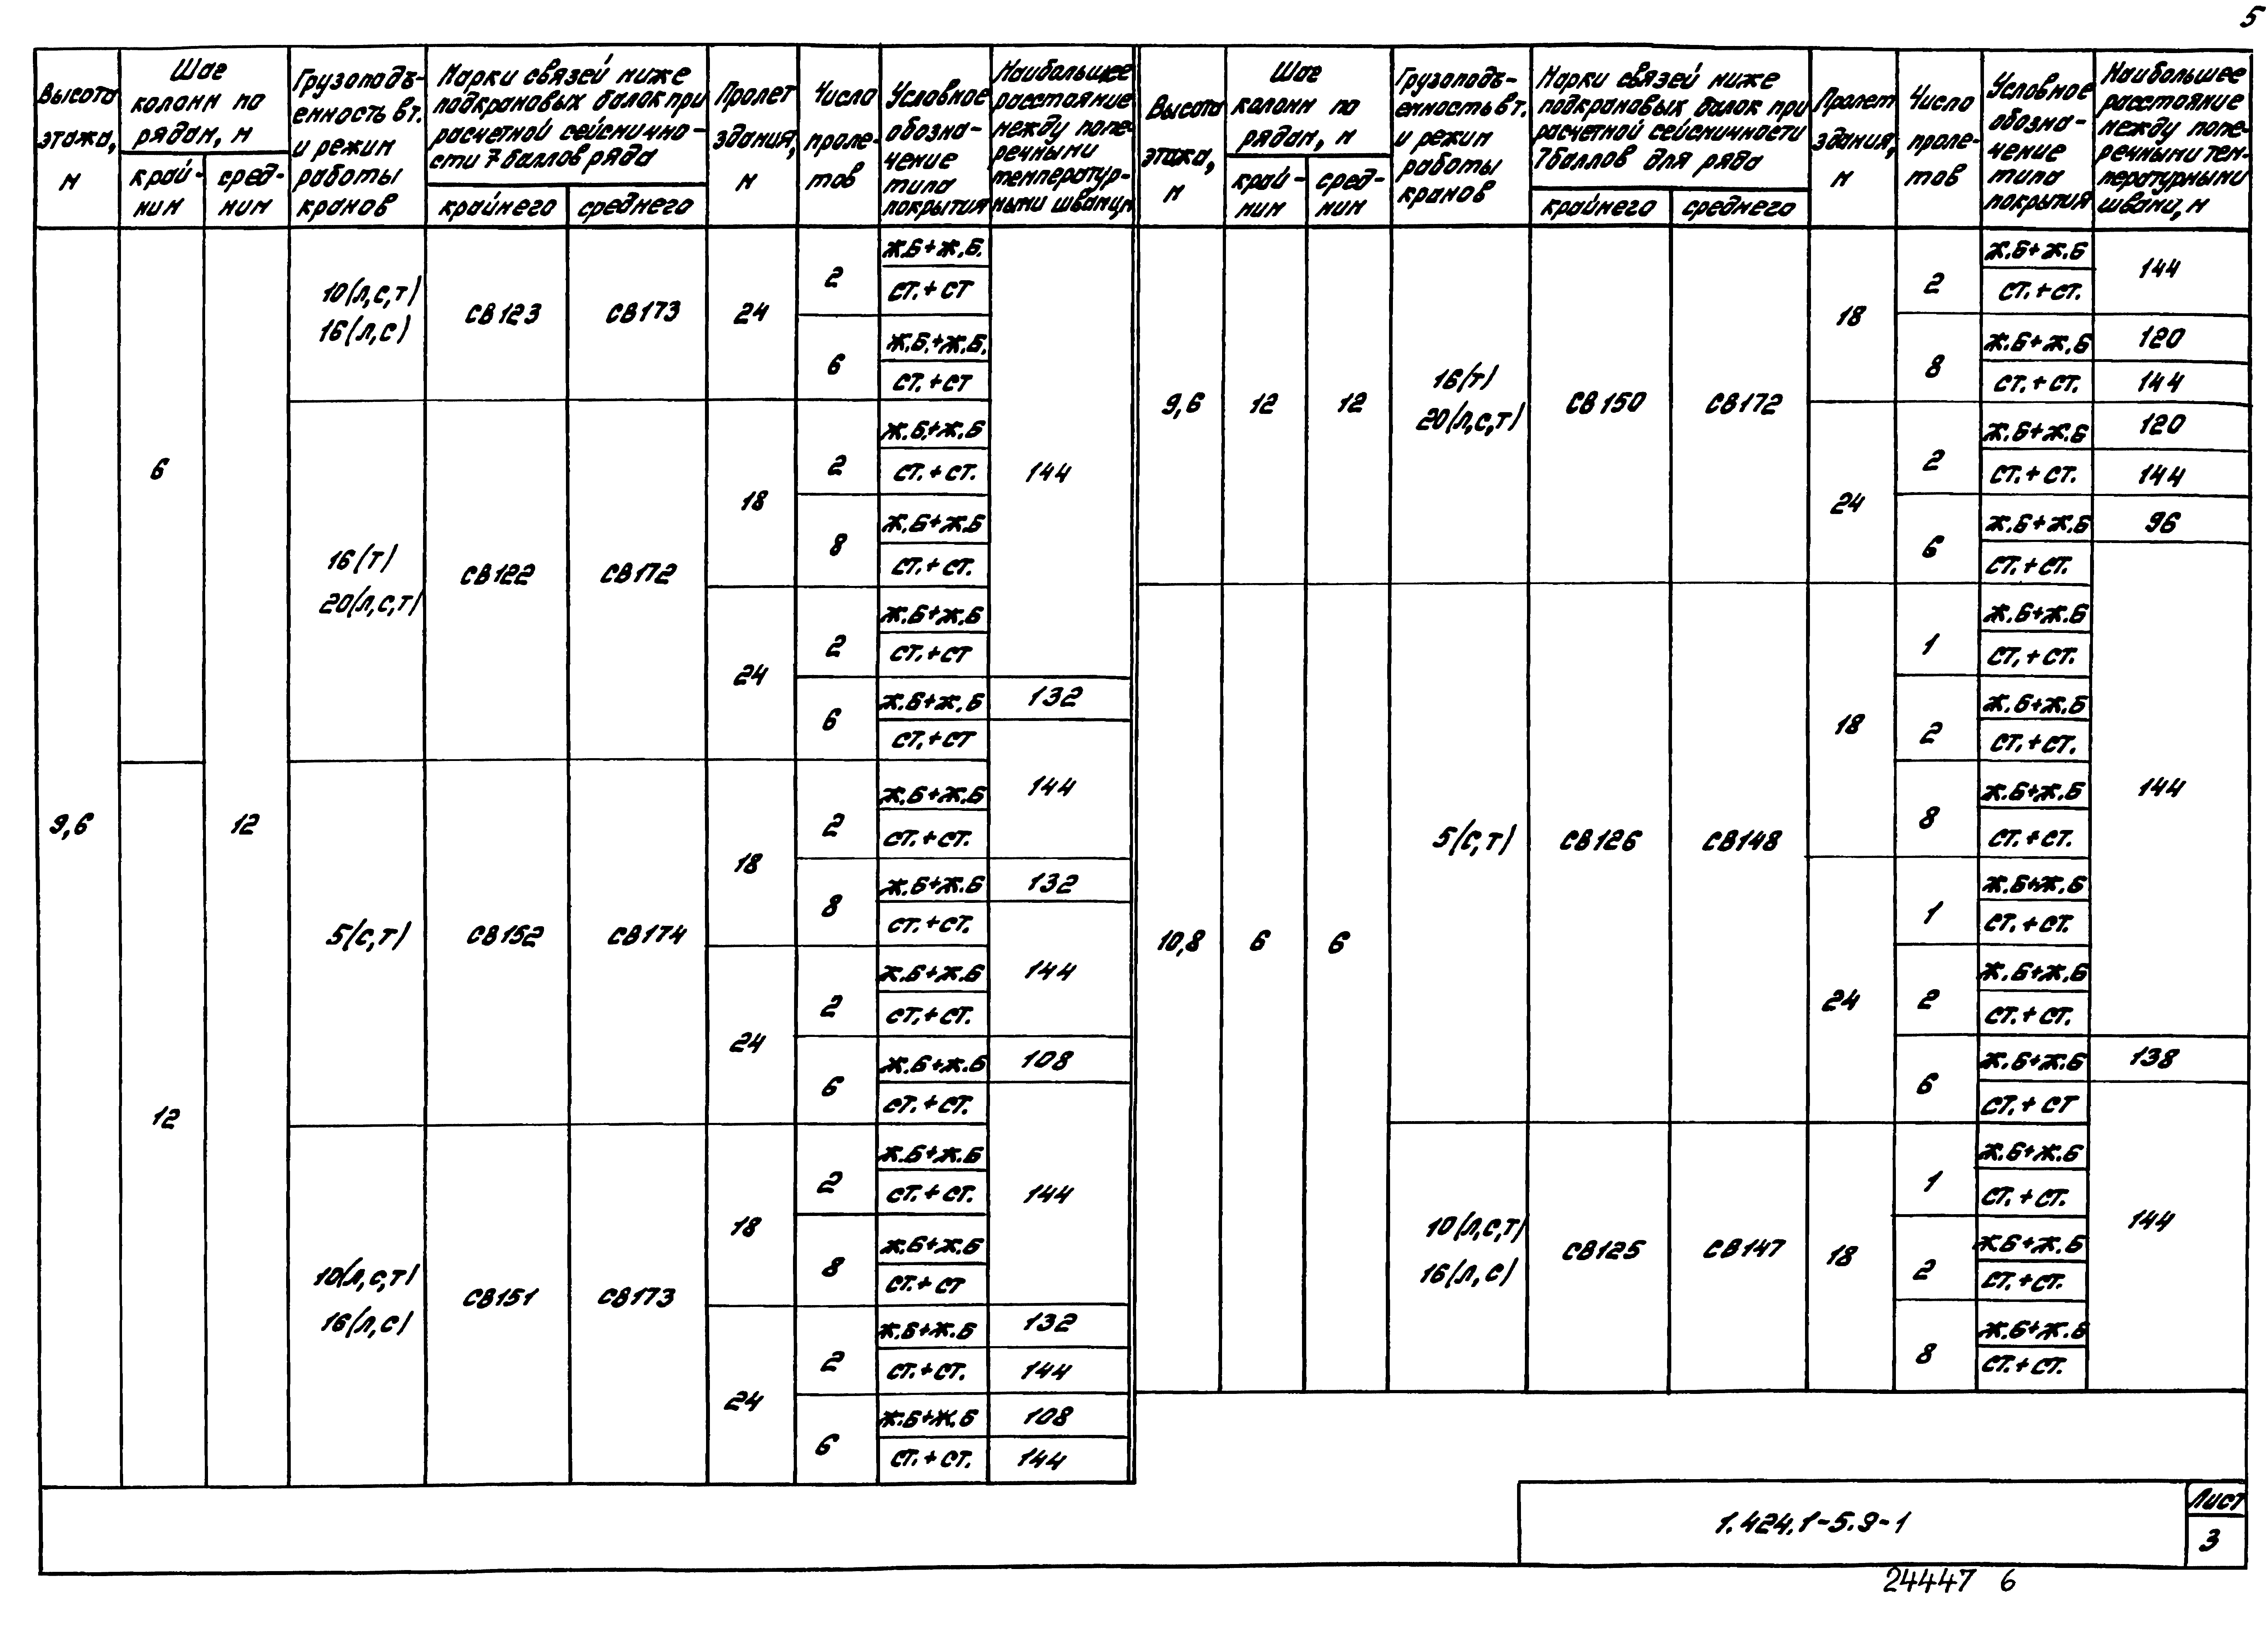 5
Высота этажа, м
Шаг колонн по рядам, м
край-ним
сред-ним
Грузоподъ-емность в т. и режим работы кранов
Марки связей ниже подкрановых балок при расчетной сейсмично-сти 7 баллов ряда
крайнего
среднего
Пролет здания, м
Число проле-тов
Условное обозна-чение типа покрытия
Наибольшее расстояние между попе-речными температур-ными швами, м
9,6
6
12
12
10(л,с,т)
16(л,с)
СВ123
СВ173
24
2
Ж.Б+Ж.Б.
СТ.+СТ
6
Ж.Б.+Ж.Б.
СТ.+СТ
144
16(т)
20(л,с,т)
СВ122
СВ172
18
2
Ж.Б.+Ж.Б
СТ.+СТ.
8
Ж.Б+Ж.Б
СТ.+СТ.
24
2
Ж.Б+Ж.Б
СТ.+СТ
6
Ж.Б+Ж.Б
132
СТ.+СТ
144
5(с,т)
СВ152
СВ174
18
2
Ж.Б+Ж.Б
СТ.+СТ.
8
Ж.Б+Ж.Б
132
СТ.+СТ.
144
24
2
Ж.Б+Ж.Б
СТ.+СТ.
6
Ж.Б+Ж.Б
108
СТ.+СТ.
144
10(л,с,т)
16(л,с)
СВ151
СВ173
18
2
Ж.Б+Ж.Б
СТ.+СТ.
8
Ж.Б+Ж.Б
СТ.+СТ
24
2
Ж.Б+Ж.Б
132
СТ.+СТ.
144
6
Ж.Б+Ж.Б
108
СТ.+СТ.
144
Высота этажа, м
Шаг колонн по рядам, м
край-ним
сред-ним
Грузоподъ-емность в т. и режим работы кранов
Марки связей ниже подкрановых балок при расчетной сейсмичности 7 баллов для ряда
крайнего
среднего
Пролет здания, м
Число проле-тов
Условное обозна-чение типа покрытия
Наибольшее расстояние между попе-речными тем-пературными швами, м
9,6
12
12
16(т)
20(л,с,т)
СВ150
СВ172
18
2
Ж.Б+Ж.Б
СТ.+СТ.
144
8
Ж.Б+Ж.Б
120
СТ.+СТ.
144
24
2
Ж.Б+Ж.Б
120
СТ.+СТ.
144
6
Ж.Б+Ж.Б
96
СТ.+СТ.
144
10,8
6
6
5(с,т)
СВ126
СВ148
18
1
Ж.Б+Ж.Б
СТ.+СТ.
2
Ж.Б+Ж.Б
СТ.+СТ.
8
Ж.Б+Ж.Б
СТ.+СТ.
24
1
Ж.Б+Ж.Б
СТ.+СТ.
2
Ж.Б+Ж.Б
СТ.+СТ.
6
Ж.Б+Ж.Б
138
СТ.+СТ
144
10(л,с,т)
16(л,с)
СВ125
СВ147
18
1
Ж.Б+Ж.Б
СТ.+СТ.
2
Ж.Б+Ж.Б
СТ.+СТ.
8
Ж.Б+Ж.Б
СТ.+СТ.
1.424.1-5.9-1
Лист
3
24447 6